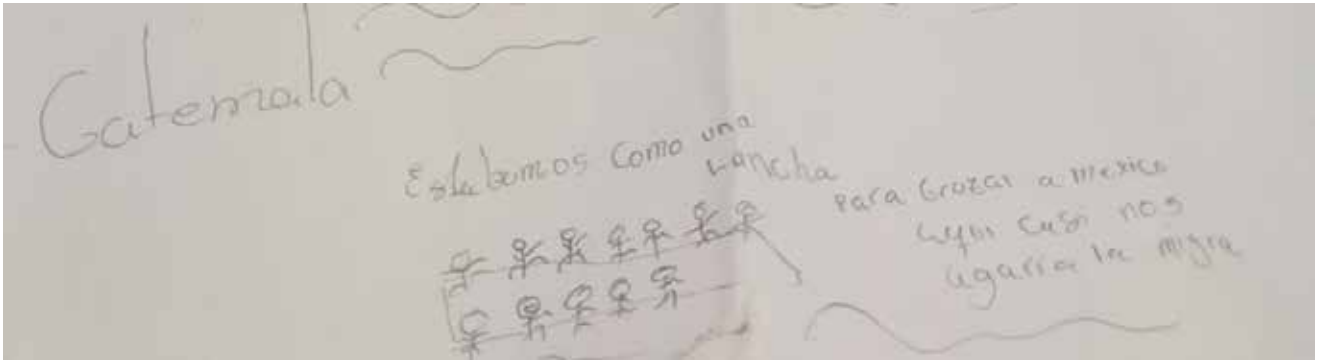 Gatemala
Estabamos como una
Lancha
para cruzar a mexico
casi nos
agarra la migra